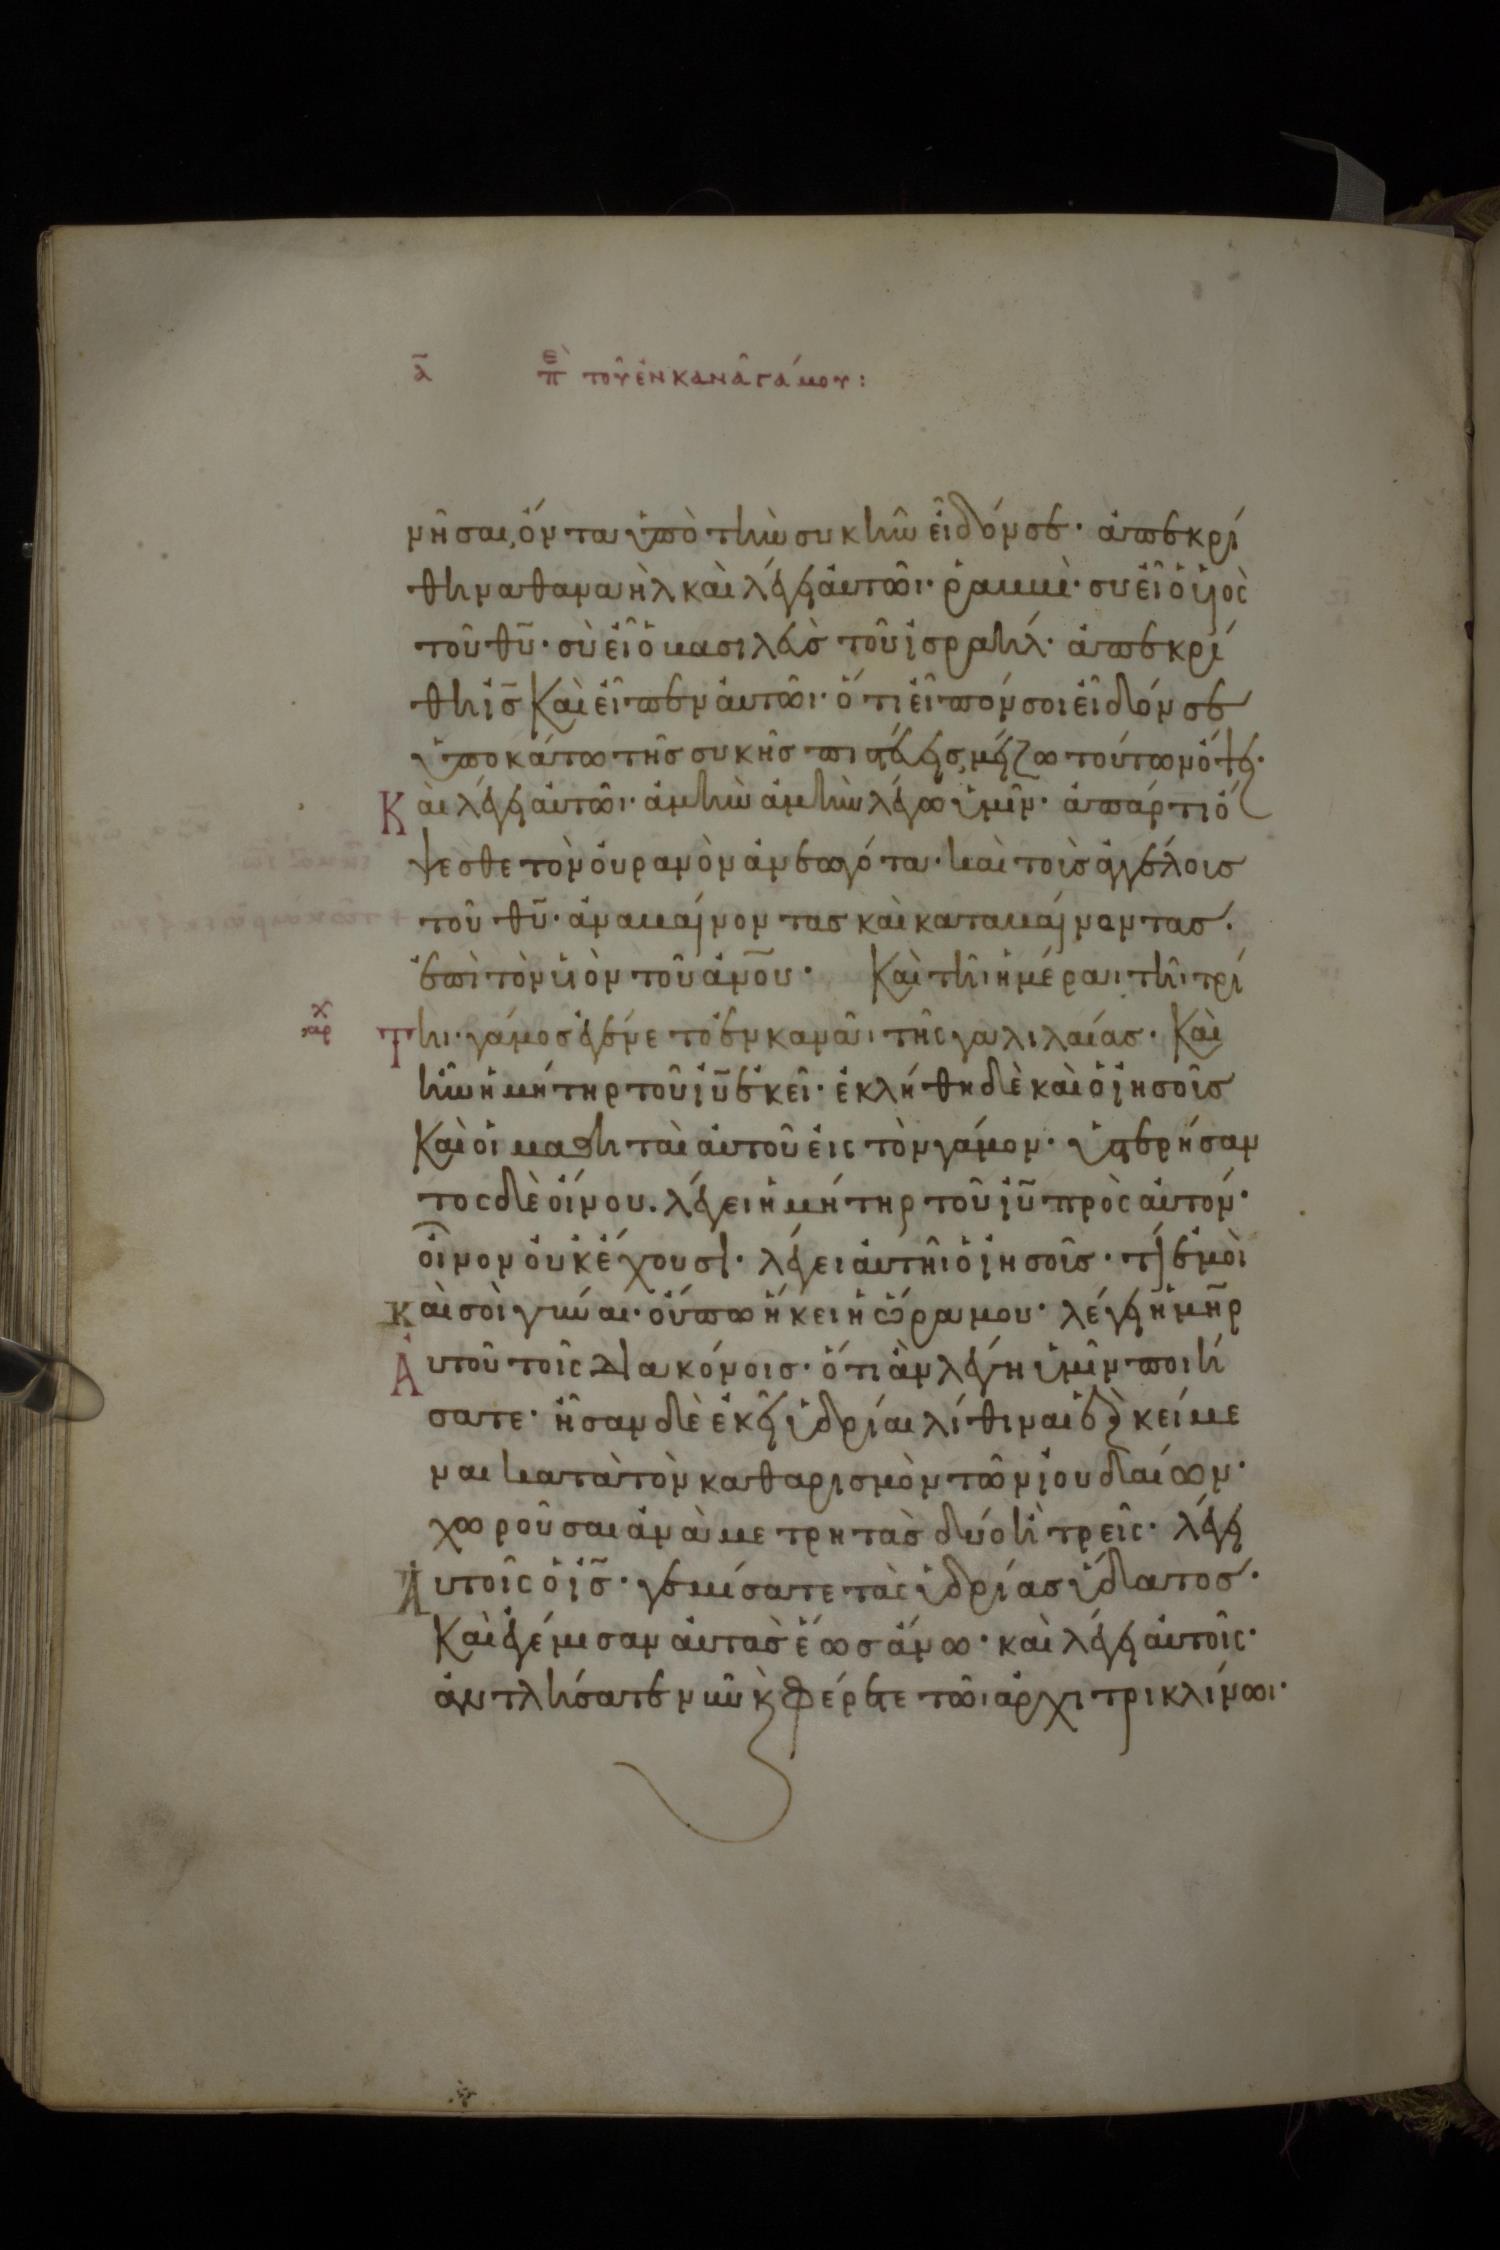 α̅ πὲ τοῦ ἐν κανᾶ γάμου:
νῆσαι, ὄντα ὑπὸ τὴν συκῆν εἶδόν σε· ἀπεκρί
θη ναθαναὴλ καὶ λέγει ἀυτῶι· ῥαββὶ· συ εἶ ὁ υἱὸς
τοῦ θυ̅· σὺ εἶ ὁ βασιλεὺσ τοῦ ἰσραήλ· ἀπεκρί
θη ἰσ̅ Καὶ εἶπεν ἀυτῶι· ὅτι εἶπόν σοι εἶδόν σε
ὑποκάτω τῆσ συκῆσ πιστεύεισ, μείζω τούτων ὄψει·
Καὶ λέγει ἀυτῶι· ἀμὴν ἀμὴν λέγω ὑμῖν· ἀπάρτι ὄ
ψεσθε τὸν ὀυρανὸν ἀνεωγότα· καὶ τοὺσ ἀγγέλουσ
τοῦ θυ̅· ἀναβαίνοντασ καὶ καταβαίνοντασ·
ἐπὶ τὸν υἱὸν τοῦ ἀν̅ου· Καὶ τῆι ἡμέραι τῆι τρί
χ
αρ
Τηι· γάμοσ ἐγένετο ἐν κανᾶι τῆς γαλιλαίασ· Καὶ
ἦν ἡ μήτηρ τοῦ ἰυ̅ ἐκεῖ· ἐκλήθη δὲ καὶ ὁ ἰησοῦσ
Καὶ οἱ μαθηταὶ ἀυτοῦ εἰς τὸν γάμον· ὑστερήσαν
τος δὲ οἴνου. λέγει ἡ μήτηρ τοῦ ἰυ̅ πρὸς ἀυτόν·
οἶνον ὀυκ ἔχουσι· λέγει ἀυτῆι ὁ ἰησοῦσ· τί ἐμοὶ
Καὶ σοὶ γύναι· ὄυπω ἥκει ἡ ὥρα μου· λέγει ἡ μη̅ρ
Ἀυτοῦ τοῖς διακόνοισ· ὅτι ἂν λέγη ὑμῖν ποιή
σατε· ἦσαν δὲ ἐκεῖ ὑδρίαι λίθιναι ἓξ κείμε
ναι κατὰ τὸν καθαρισμὸν τῶν ἰουδαίων·
χωροῦσαι ἀνὰ μετρητὰσ δύο ἢ τρεῖς· λέγει
Ἀυτοῖς ὁ ἰσ̅· γεμίσατε τὰς ὑδρίασ ὕδατοσ·
Καὶ ἐγέμισαν ἀυτὰσ ἕωσ ἄνω· καὶ λέγει ἀυτοῖς·
ἀντλήσατε νῦν κ̀ φέρετε τῶι ἀρχιτρικλίνωι·